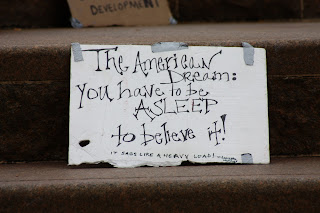 DEVELOPMENT
The American
Dream:
You have to be
ASLEEP
to believe it!
IT SAGS LIKE A HEAVY LOAD!